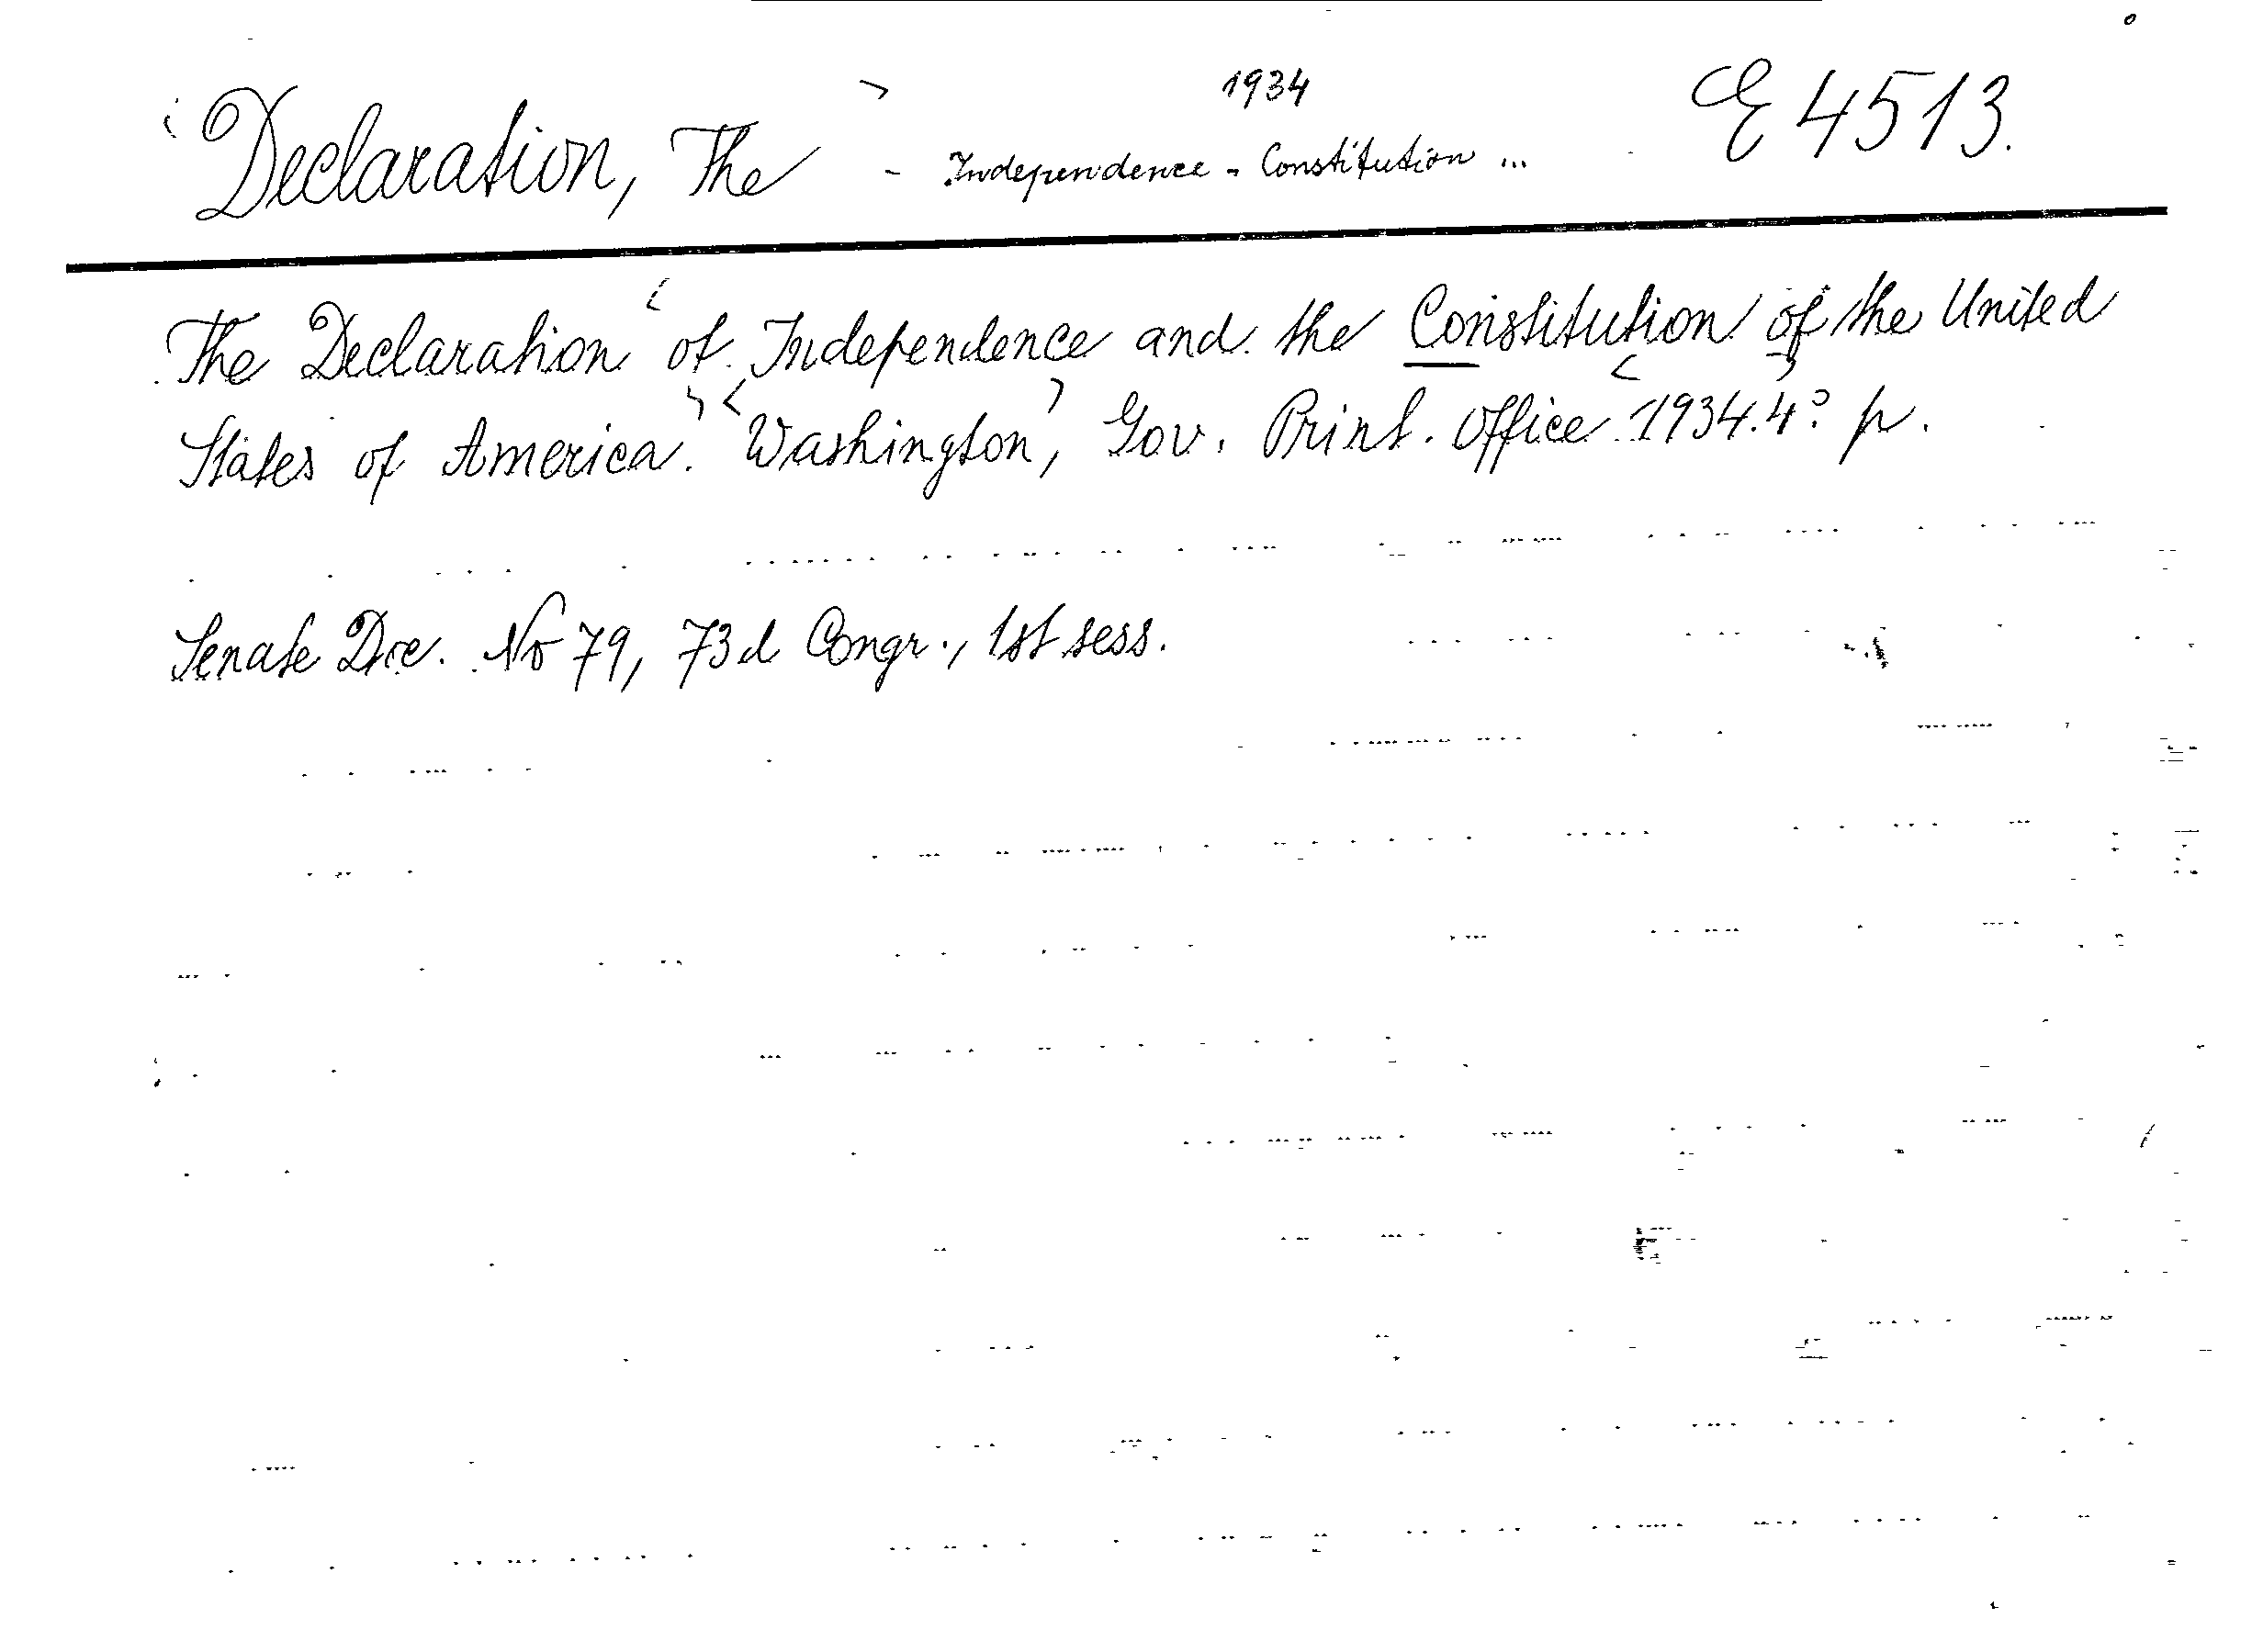 1934
Declaration, The - Independence - Constitution ... E 4513.
The Declaration of Independence and the Constitution of the United
States of America. Washington, Gov. Print. Office 1934. 4° p.
Senate Doc. No 79, 73d Congr., 1st sess.